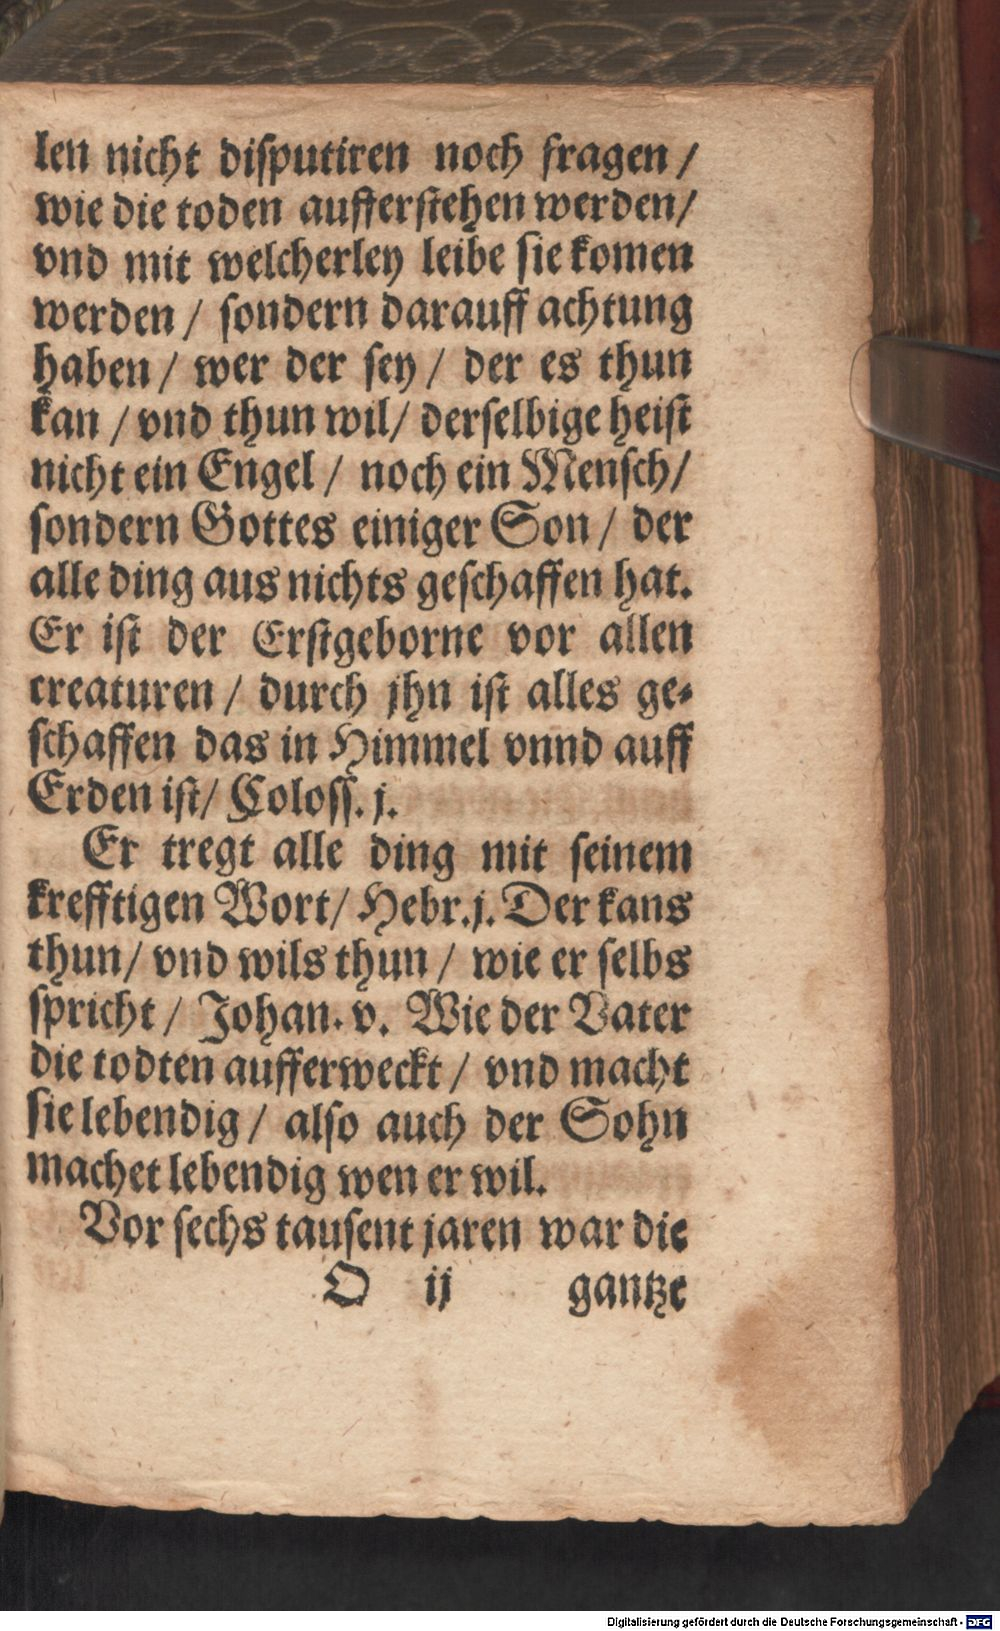 len nicht diſputiren noch fragen /
wie die toden aufferſtehen werden/
vnd mit welcherley leibe ſie komen
werden / ſondern darauff achtung
haben / wer der ſey / der es thun
kan / vnd thun wil/ derſelbige heiſt
nicht ein Engel / noch ein Menſch/
ſondern Gottes einiger Son / der
alle ding aus nichts geſchaffen hat.
Er iſt der Erſtgeborne vor allen
creaturen / durch jhn iſt alles ge⸗
ſchaffen das in Himmel vnnd auff
Erden iſt/ Coloſſ. j.
Er tregt alle ding mit ſeinem
krefftigen Wort/ Hebr. j. Der kans
thun/ vnd wils thun / wie er ſelbs
ſpricht / Johan. v. Wie der Vater
die todten aufferweckt / vnd macht
ſie lebendig / alſo auch der Sohn
machet lebendig wen er wil.
Vor ſechs tauſent jaren war die
O ij gantze
Digitalisierung gefördert durch die Deutsche Forschungsgemeinschaft - DFG